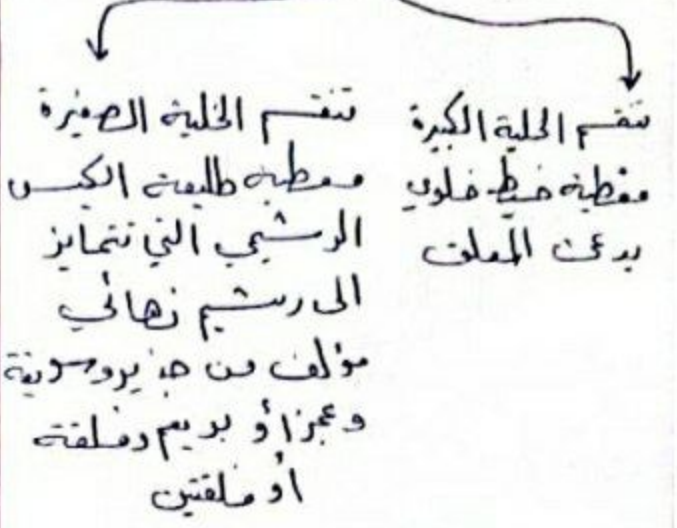 تنقسم الخلية الكبيرة
معطية خيط خلوي
يدعى المعلق
تنقسم الخلية الصغيرة
معطية طليعة الكيس
الرشيمي التي تتمايز
الى رشيم نهائي
مؤلف من جذير وسويقة
وعجز أو بريعم وفلقة
أو فلقتين